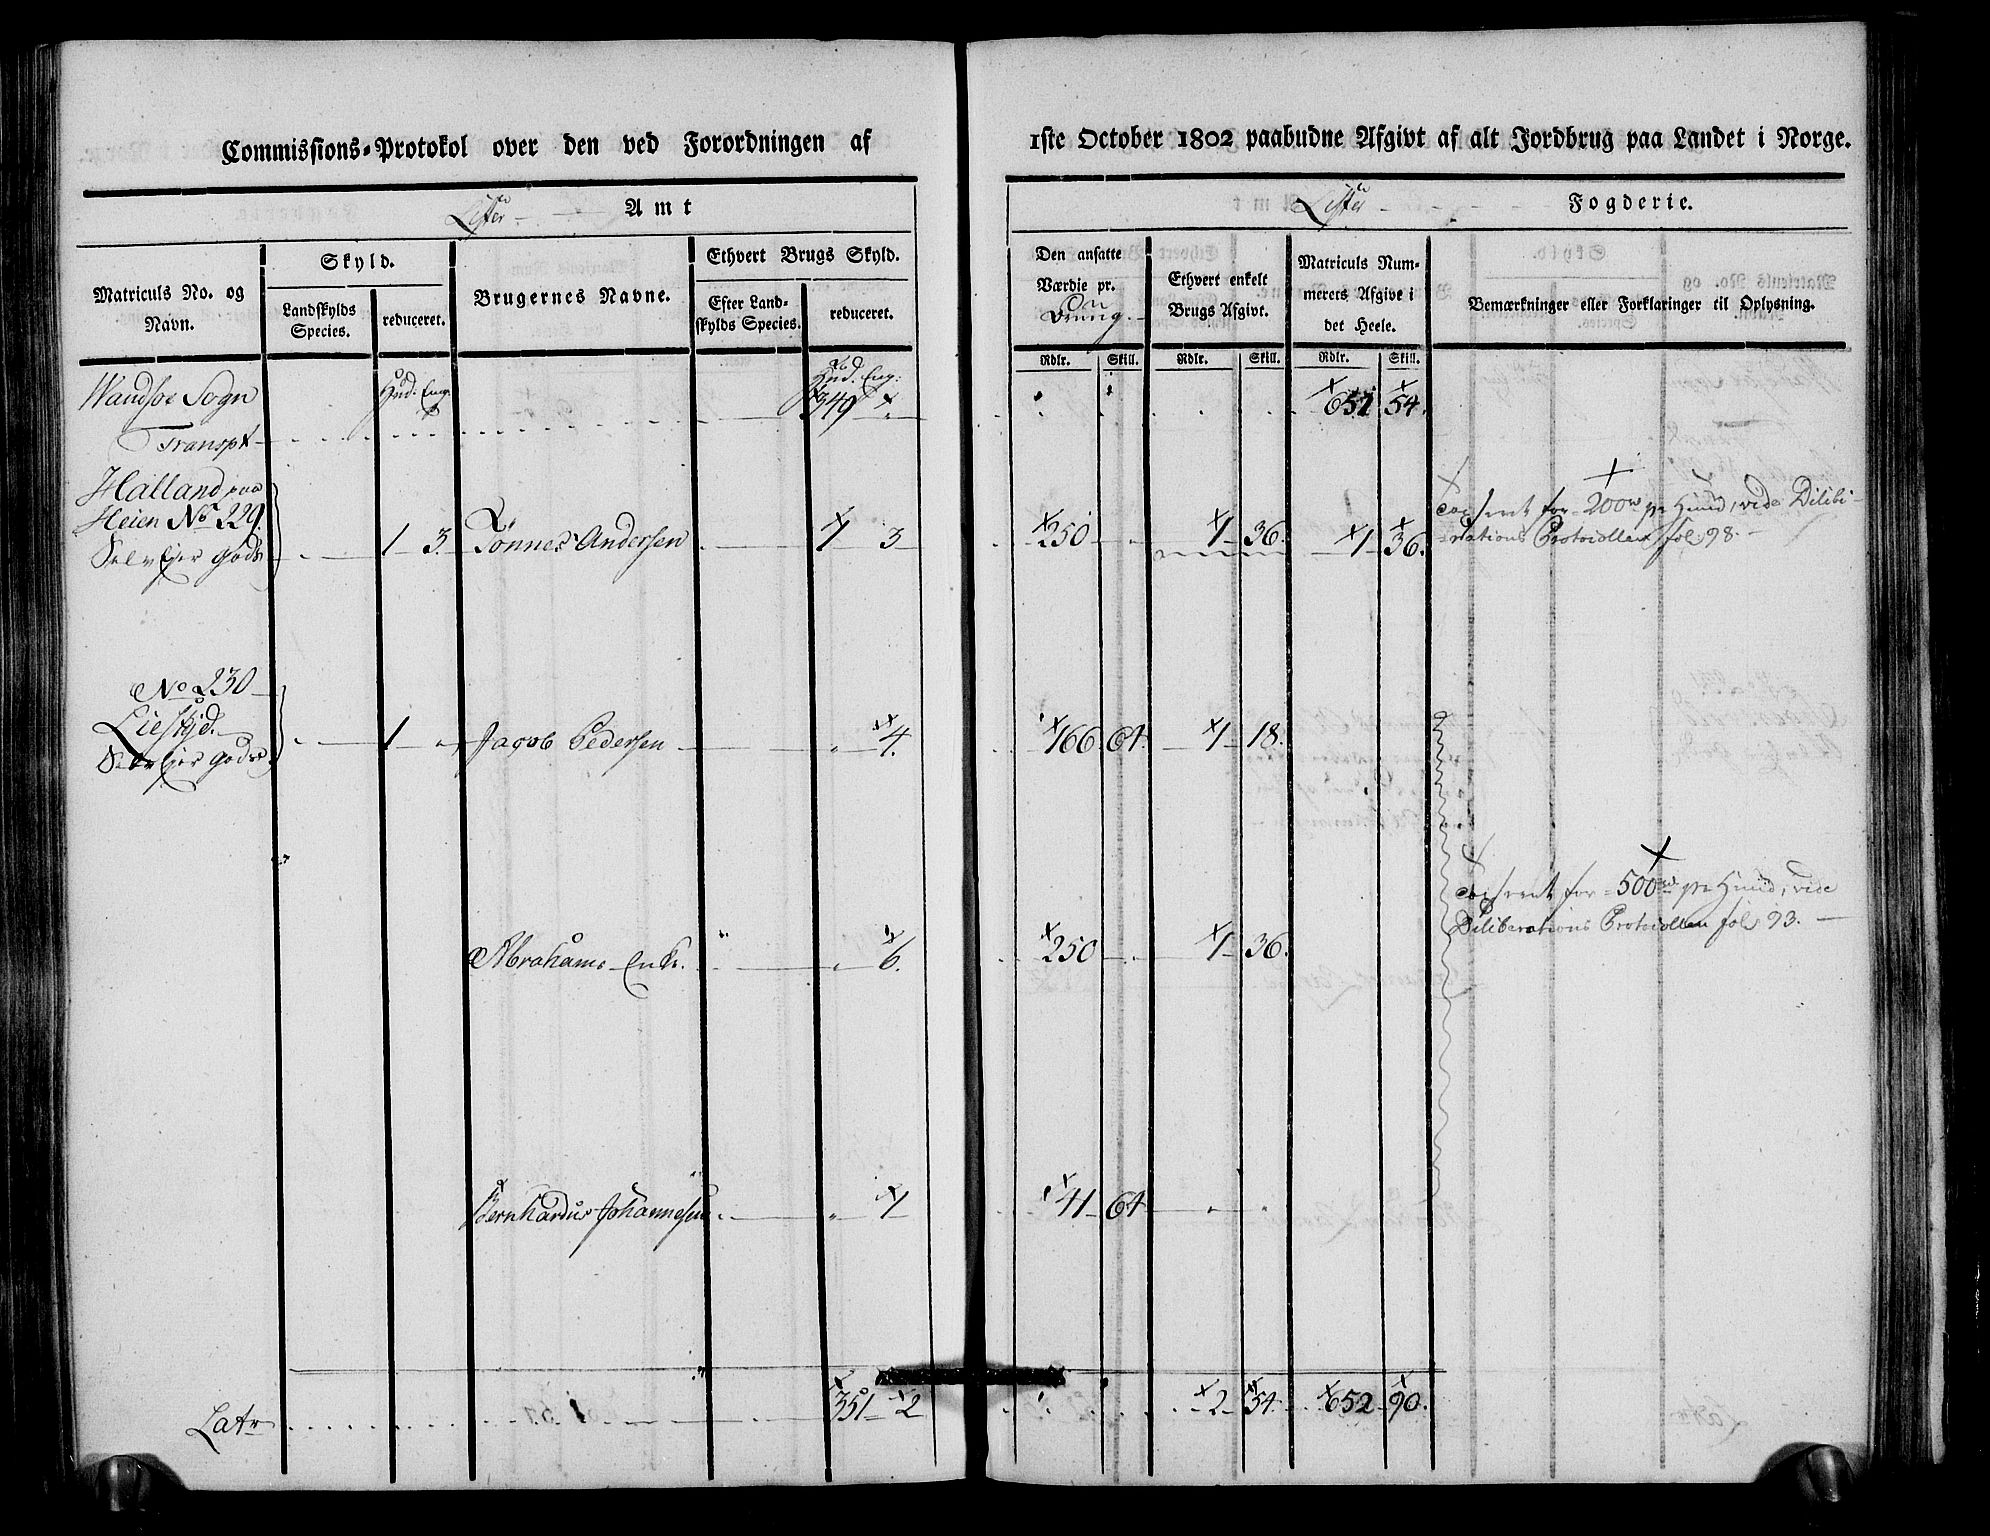 Commissions-Protokol over den ved Forordningen af
1ste October 1802 paabudne Afgivt af alt Jordbrug paa Landet i Norge.
Lister Amt
Lister Fogderie.
Matriculs No. og Navn.
Skyld.
Landskylds Species.
reduceret.
Brugernes Navne.
Ethvert Brugs Skyld.
Efter Landskylds Species.
reduceret.
Den ansatte Værdie pr. Brug.
Ethvert enkelt Brugs Afgivt.
Matriculs Nummerets Afgive i det Heele.
Bemærkninger eller Forklaringer til Oplysning.
Rdlr. Skill. Rdlr. Skill. Rdlr. Skill.
Wandsøe Sogn Hud: Eng: Hud. Eng:
Transpt 349 „ 651 54.
Halland paa
Heien No 229.
Selv Ejer gods 1 3. Tønnes Andersen 1 3 250 1 36. 1 36.
for 200 rd pr Huud, vide Dilibe-
rations Protocollen fol: 98.
No 230
Lieskjed.
Selv Ejer gods. 1 „ Jacob Pedersen „ 4. 166 64. 1 18.
for 500 rd pr Huud, vide
Diliberations Protocollen fol 93.
Abrahams Enke. „ 6. 250 1 36.
Bernhardus Johannesen „ 1 41 64 „ „
Latr 351 2 2 54. 652 90.